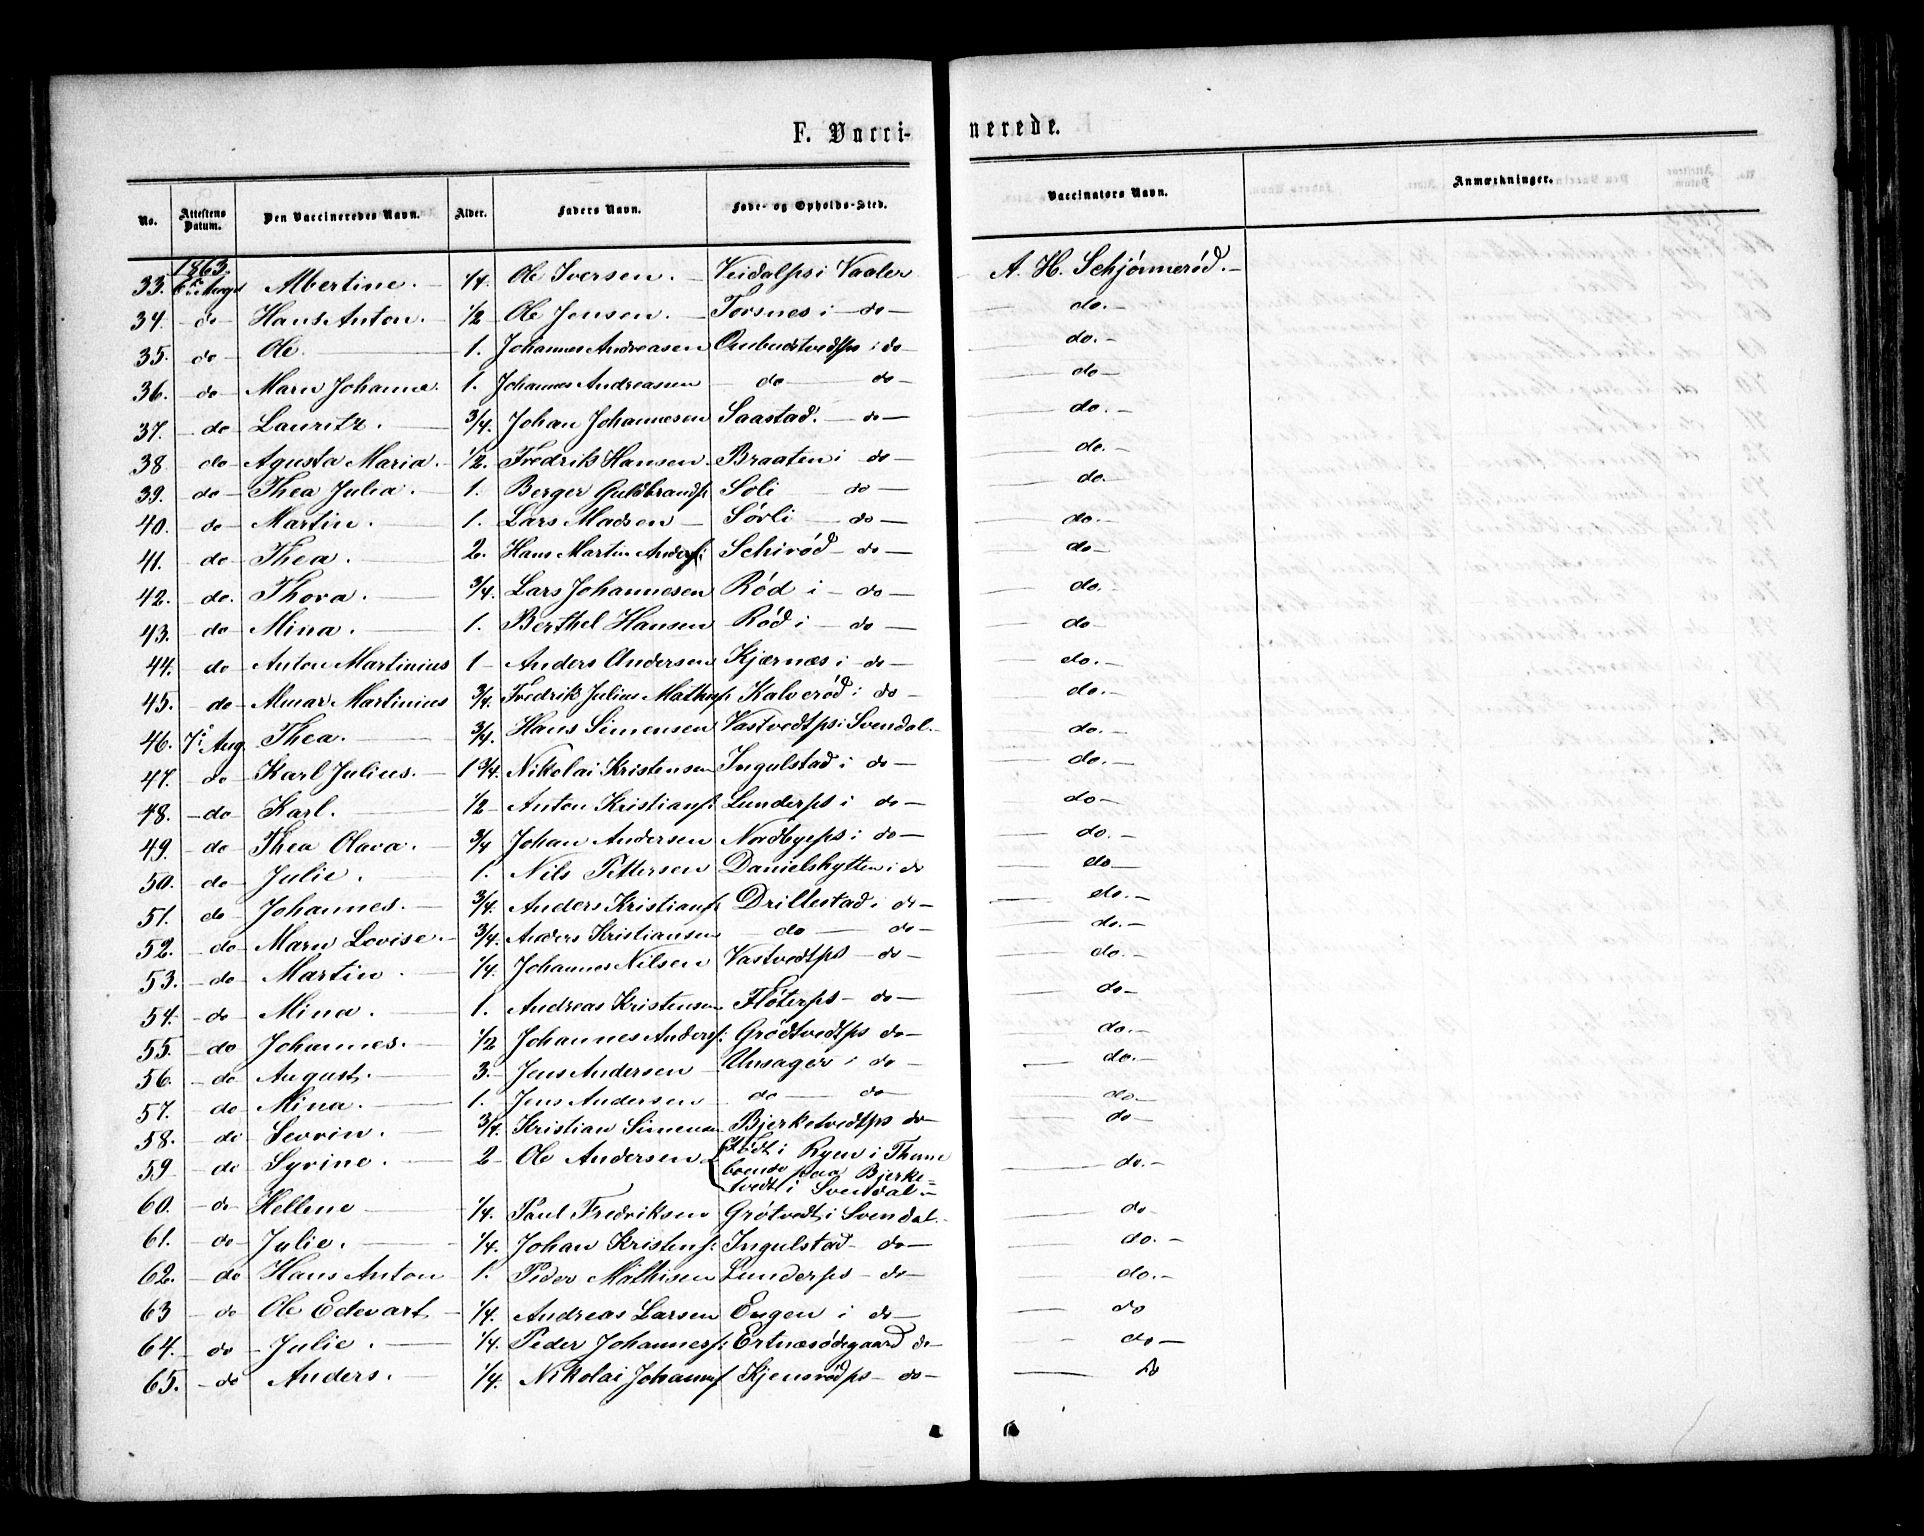 F. Vacci- nerede.
No. Attestens Datum. Den Vaccineredes Navn. Alder. Faders Navn. Føde- og Opholds-Sted. Vaccinators Navn. Anmærkninger.
1863.
33. 6te Aug Albertine. 1/4. Ole Iversen. Veidalps i Vaaler A. H. Schjønnerød.
34. do Hans Anton. 1/2 Ole Jensen. Torsnes i do do.
35. do Ole 1. Johannes Andreasen Ombudstvedtps i do do.
36. do Marn Johanne. 1. Johannes Andreasen do do do
37. do Lauritz. 3/4. Johan Johannesen Saastad. do do.
38 do Agusta Maria. 1/2. Fredrik Hansen. Braaten i do do.
39. do Thea Julia. 1. Berger Guldbrands: Soli do do.
40. do Martin. 1. Lars Madsen Sørli do do.
41. do Thea. 2. Hans Martin Anders: Schirød do do
42. do. Thora. 3/4. Lars Johannesen Rød i do do.
43. do Mina. 1. Berthel Hansen Rød i do do
44. do Anton Martinius 1 Anders Andersen Kjærnæs i do do.
45. do Almar Martinius 3/4. Fredrik Julius Mathis: Kalverød i do do.
46. 7de Aug Thea. 3/4. Hans Simensen Vastvedtps i Svendal. do.
47. do Karl Julius. 1 3/4. Nikolai Kristensen Ingulstad i do do.
48. do Karl. 1/2 Anton Kristians: Lunderps i do do
49. do Thea Olava. 3/4 Johan Andersen Nordbyeps i do do.
50. do Julie. 1. Nils Pettersen Danielshytten i do do
51. do Johannes. 3/4. Anders Kristians: Drillestad i do do.
52. do Marn Lovise. 3/4. Anders Kristiansen do do do.
53. do Martin. 1/4. Johannes Nilsen Vastvedtps do do.
54. do Mina. 1. Andreas Kristensen Fløterps do do.
55. do Johannes. 1/2 Johannes Anders: Grødtvedtps do do.
56. do August. 3. Jens Andersen Unsager i do do.
57. do Mina. 1. Jens Andersen do do do.
58. do Sevrin. 3/4. Kristian Simensen Bjerketvedtps do do
59 do Syrine. 2 Ole Andersen. Født i Ryen i Thune
boende paa Bjerke-
tvedt i Svendal. do.
60. do Hellene 1/4. Paul Fredriksen Grøtvedt i Svendal. do
61. do Julie. 1/4. Johan Kristens: Ingulstad do do.
62. do Hans Anton 1. Peder Mathisen Lunderps do do.
63 do Ole Edevart 1/4. Andreas Larsen Engen i do do
64. do Julie. 1/4. Peder Johannes: Ertnæsødegaard do do
65. do Anders. 1/4. Nikolai Johanns: Kjensrødps do do